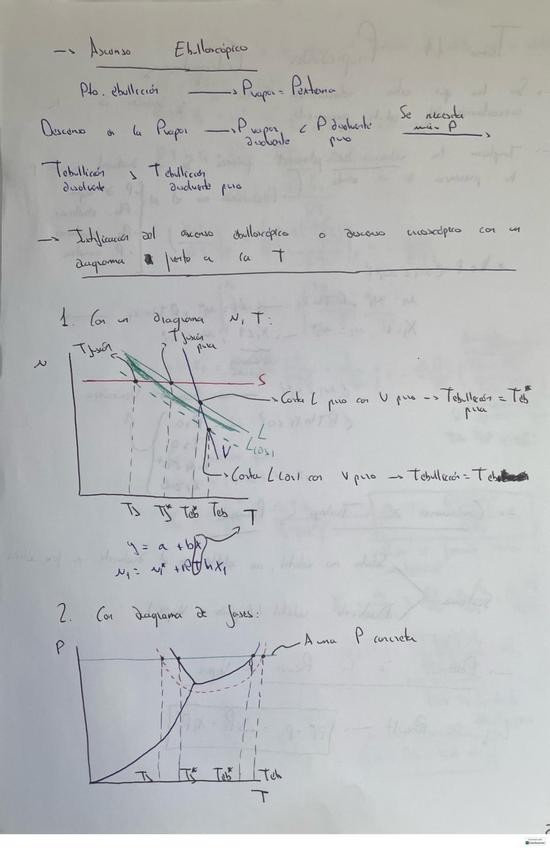 → Ascenso Ebulloscópico
Pto. ebullición → Pvapor = Pexterna
Descenso en la Pvapor → Pvapor disolvente < P disolvente puro Se necesita más P →
Tebullición disolvente > Tebullición disolvente puro
→ Justificación del ascenso ebulloscópico o descenso crioscópico con un
diagrama μ frente a la T
1. Con un diagrama μ, T:
Tfusión
Tfusión pura
μ
S
→ Corta L puro con V puro → Tebullición pura = Teb*
L
L(dis)
V
→ Corta L(dis) con V puro → Tebullición = Teb
Tf Tf* Teb* Teb T
y = a + bx
μ₁ = μ₁* + RT ln x₁
2. Con diagrama de fases:
P
A una P concreta
Tf Tf* Teb* Teb
T